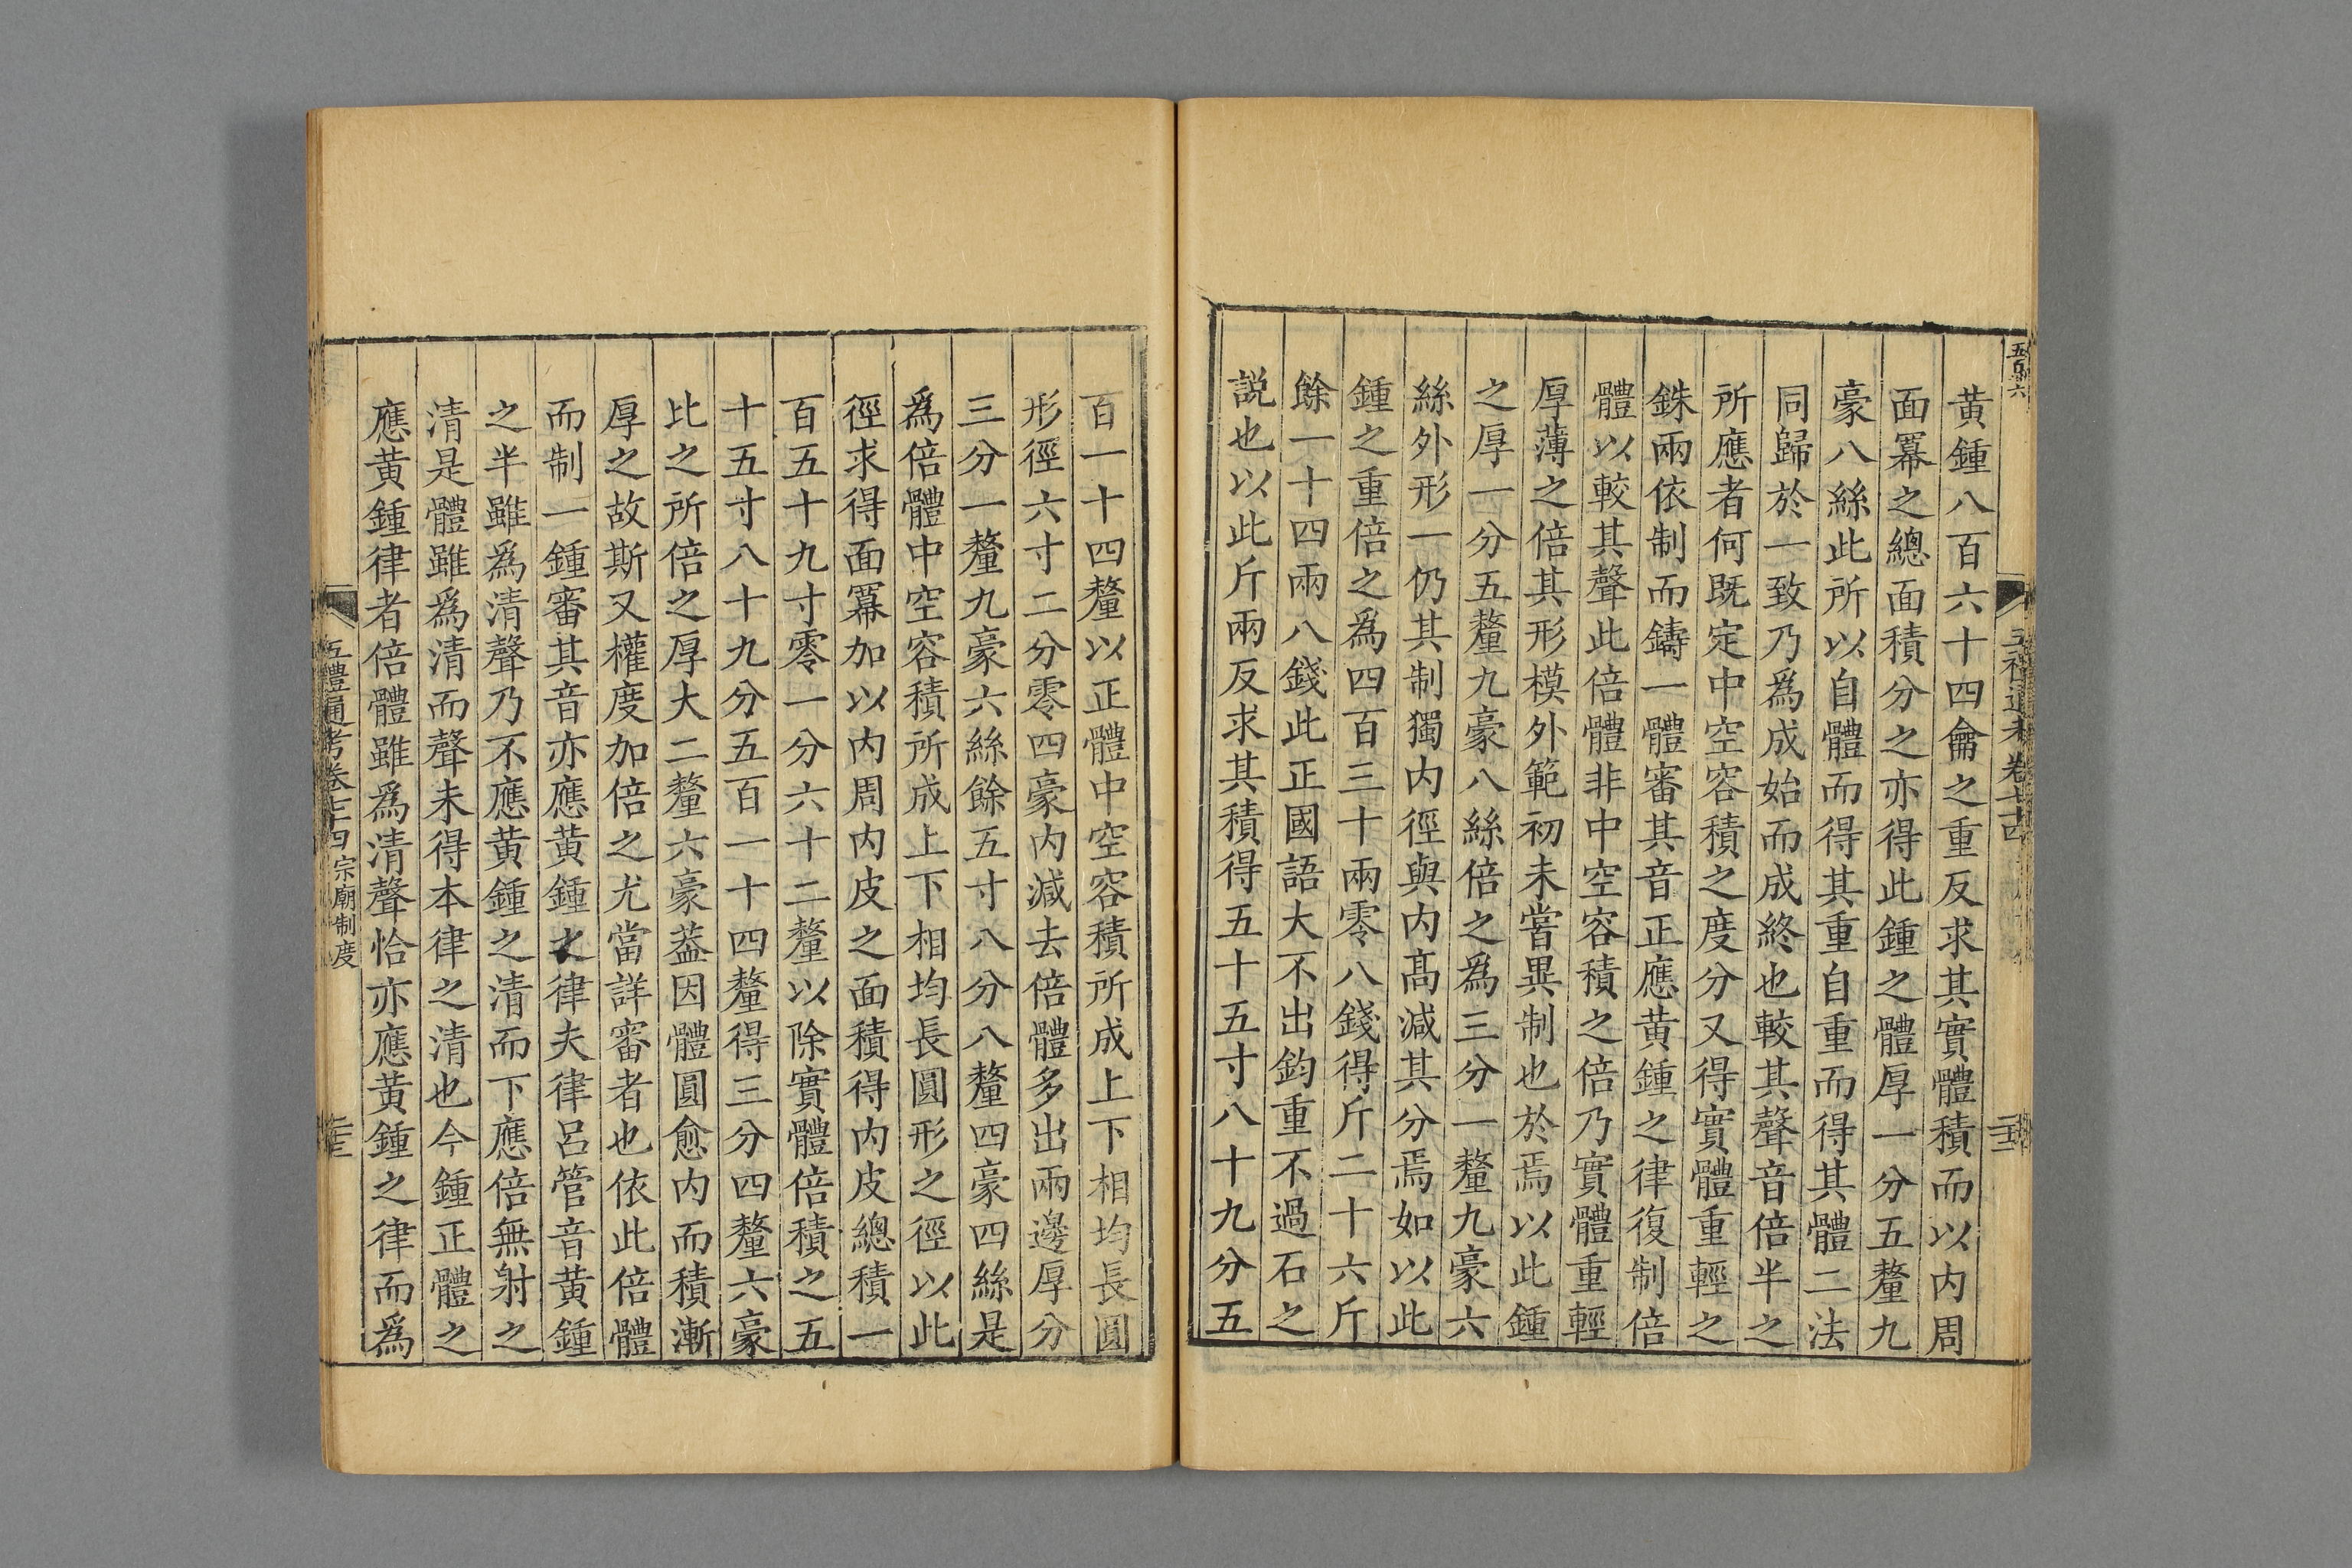 黄鍾八百六十四龠之重反求其實體積而以内周
面冪之總面積分之亦得此鍾之體厚一分五釐九
豪八絲此所以自體而得其重自重而得其體二法
同歸於一致乃爲成始而成終也較其聲音倍半之
所應者何既定中空容積之度分又得實體重輕之
銖兩依制而鑄一體審其音正應黄鍾之律復制倍
體以較其聲此倍體非中空容積之倍乃實體重輕
厚薄之倍其形模外範初未嘗異制也於焉以此鍾
之厚一分五釐九豪八絲倍之爲三分一釐九豪六
絲外形一仍其制獨内徑與内髙減其分焉如以此
鍾之重倍之爲四百三十兩零八錢得斤二十六斤
餘一十四兩八錢此正國語大不出鈞重不過石之
説也以此斤兩反求其積得五十五寸八十九分五
百一十四釐以正體中空容積所成上下相均長圓
形徑六寸二分零四豪内減去倍體多出兩邊厚分
三分一釐九豪六絲餘五寸八分八釐四豪四絲是
爲倍體中空容積所成上下相均長圓形之徑以此
徑求得面冪加以内周内皮之面積得内皮總積一
百五十九寸零一分六十二釐以除實體倍積之五
十五寸八十九分五百一十四釐得三分四釐六豪
比之所倍之厚大二釐六豪葢因體圓愈内而積漸
厚之故斯又權度加倍之尤當詳審者也依此倍體
而制一鍾審其音亦應黄鍾之律夫律呂管音黄鍾
之半雖爲清聲乃不應黄鍾之清而下應倍無射之
清是體雖爲清而聲未得本律之清也今鍾正體之
應黄鍾律者倍體雖爲清聲恰亦應黄鍾之律而爲
五禮通考卷七十四 宗廟制度